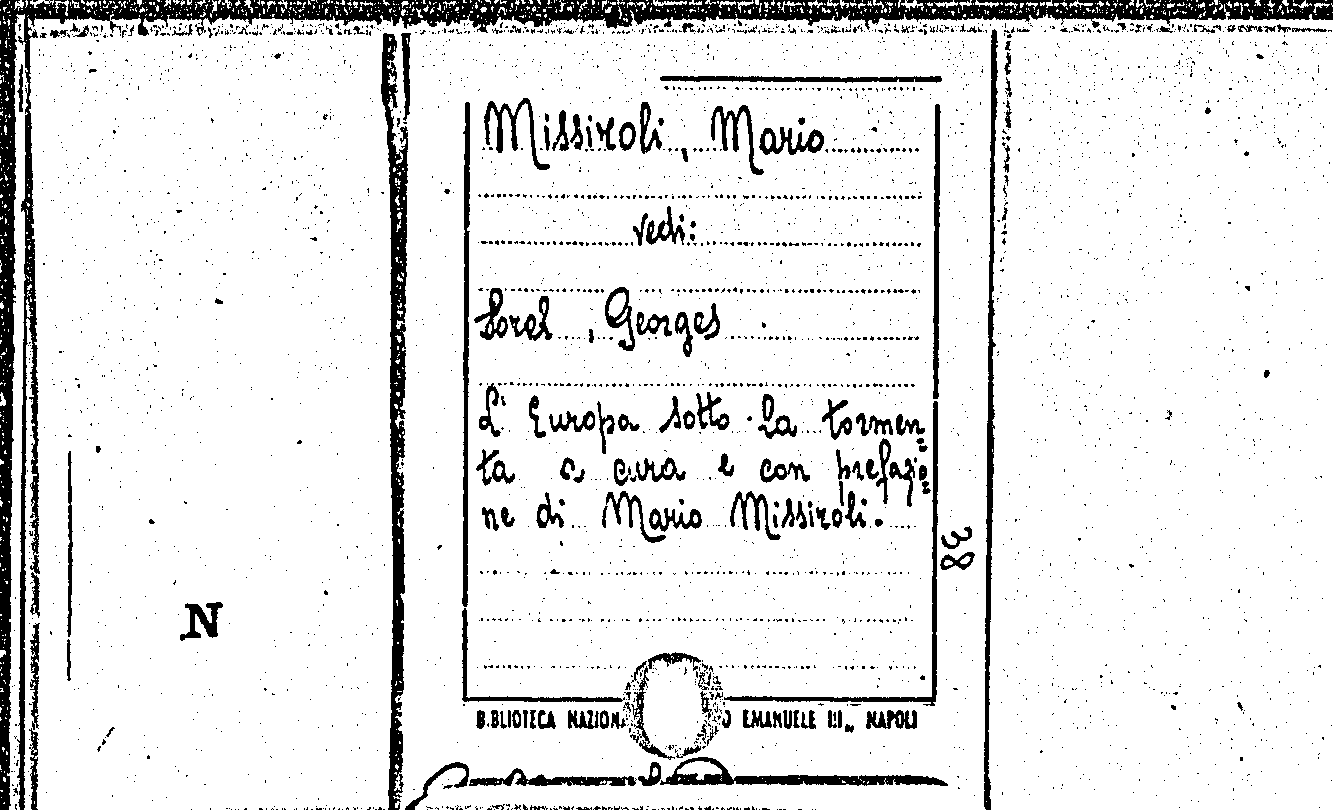 Missiroli, Mario
vedi:
Sorel, Georges
L'Europa sotto la tormen=
ta a cura e con prefazio=
ne di Mario Missiroli.
38
N
B.BLIOTECA NAZIONA O EMANUELE III„ NAPOLI